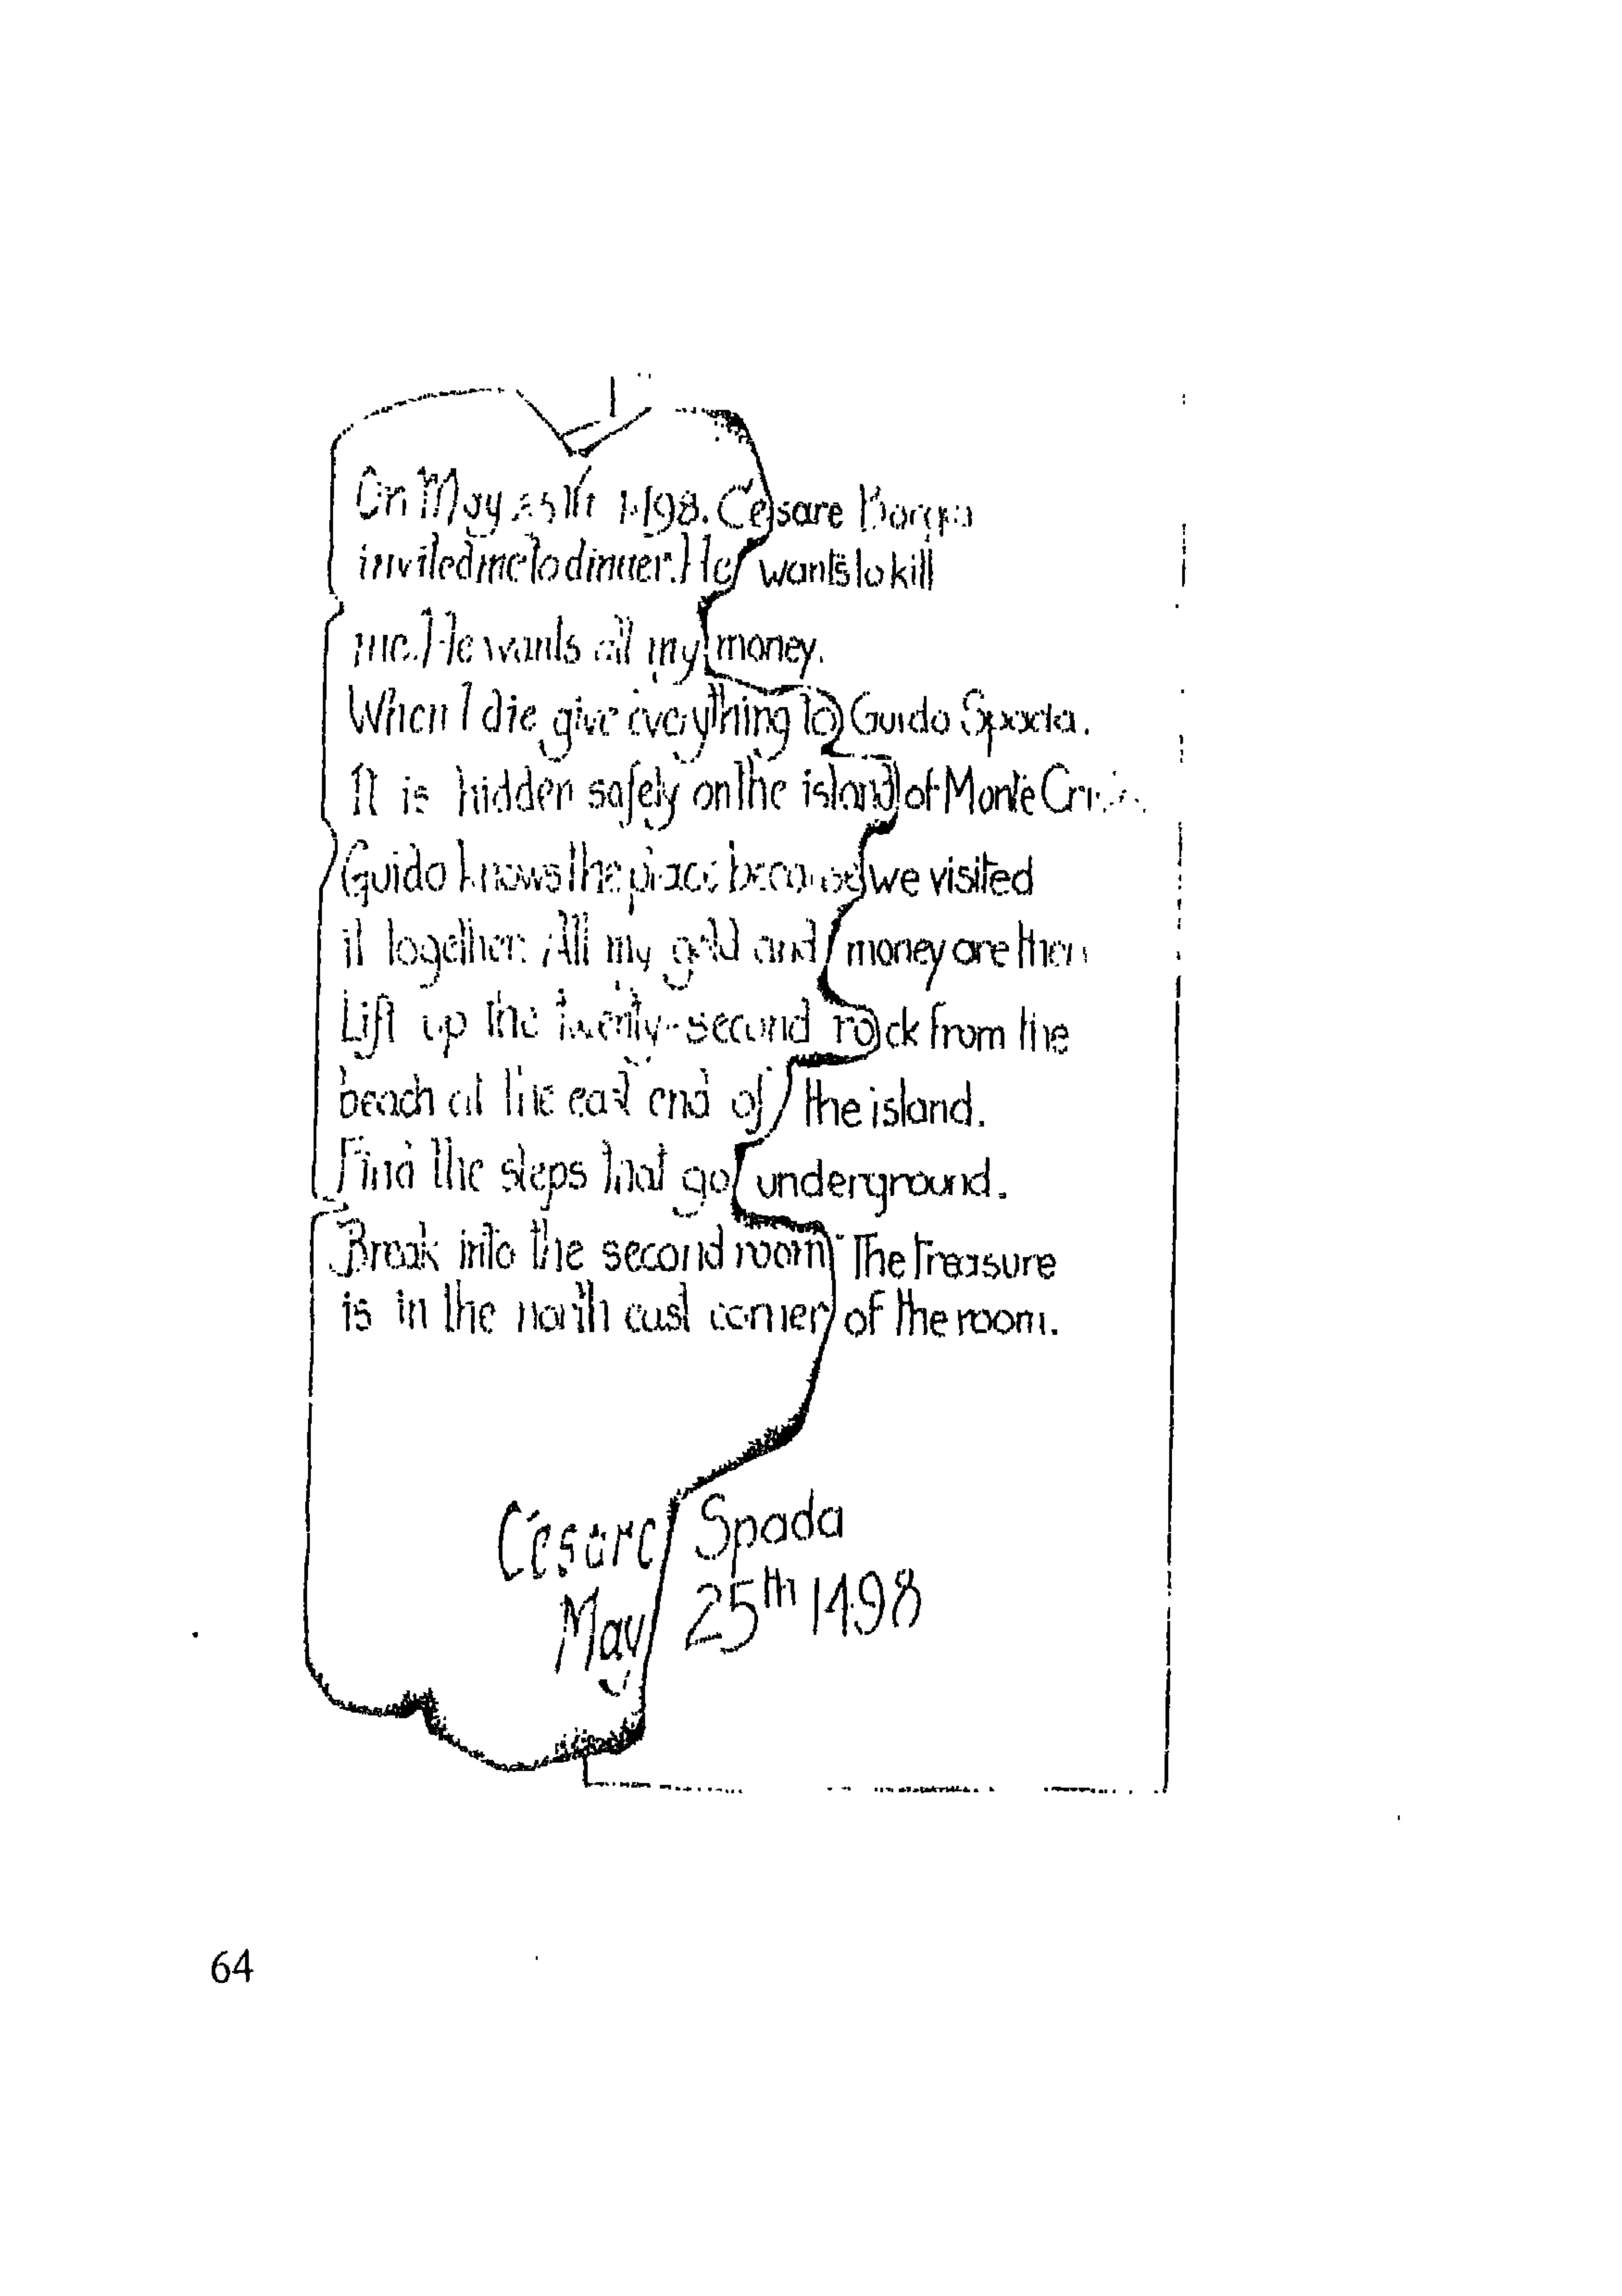 On May 25th 1498. Cesare Borgia
invited me to dinner. He wants to kill
me. He wants all my money.
When I die give everything to Guido Spada.
It is hidden safely on the island of Monte
Guido knows the place because we visited
it together. All my gold and money are
Lift up the twenty-second rock from the
beach at the east end of the island.
Find the steps that go underground.
Break into the second room The Treasure
is in the north east corner of the room.
Cesare Spada
May 25th 1498
64